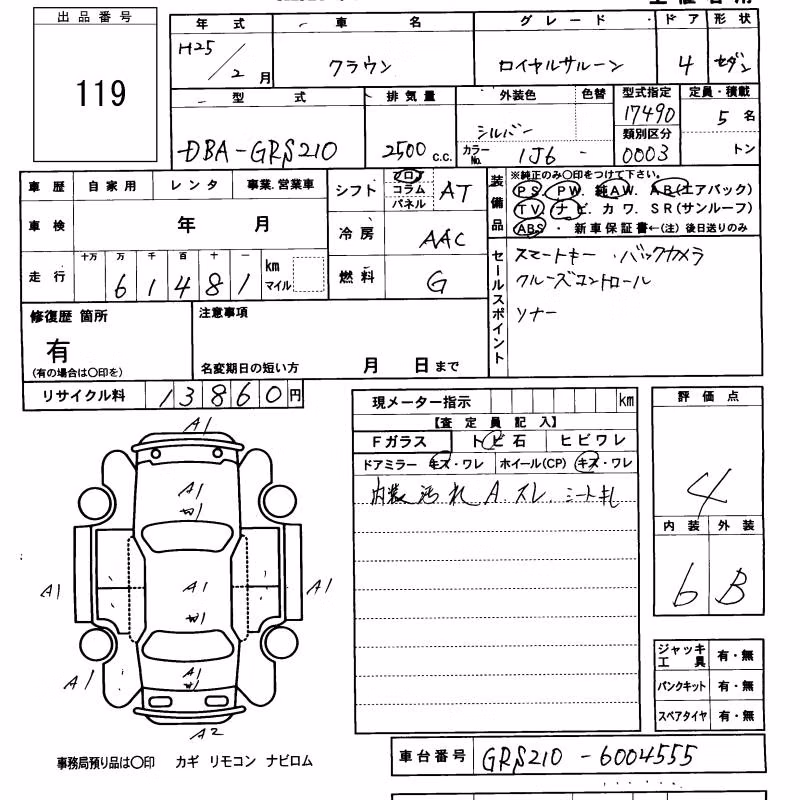 出品番号
119
年式 車名 グレード ドア 形状
H25/2月 クラウン ロイヤルサルーン 4 セダン
型式 排気量 外装色 色替 型式指定 定員・積載
DBA-GRS210 2500c.c. シルバー 17490 5名
カラーNo. 1J6 - 類別区分 0003 トン
車歴 自家用 レンタ 事業.営業車
車検 年 月
走行 十万 万 千 百 十 一 km マイル
6 1 4 8 1
シフト フロ コラム パネル AT
冷房 AAC
燃料 G
装備品
※純正のみ〇印をつけて下さい。
PS. PW. 純AW. AB(エアバック)
TV. ナビ. カワ. SR(サンルーフ)
ABS ・ 新車保証書←(注) 後日送りのみ
セールスポイント
スマートキー ・バックカメラ
クルーズコントロール
ソナー
修復歴 箇所
有
(有の場合は〇印を)
注意事項
名変期日の短い方 月 日まで
リサイクル料 13860円
現メーター指示 km
【査定員記入】
Fガラス トビ石 ヒビワレ
ドアミラー キズ・ワレ ホイール(CP) キズ・ワレ
内装汚れ A. スレ. シートキレ
評価点
4
内装 外装
6 B
A1
A1
A1
A1
A1
A1
A1
A2
ジャッキ工具 有・無
パンクキット 有・無
スペアタイヤ 有・無
事務局預り品は〇印 カギ リモコン ナビロム
車台番号 GRS210-6004555